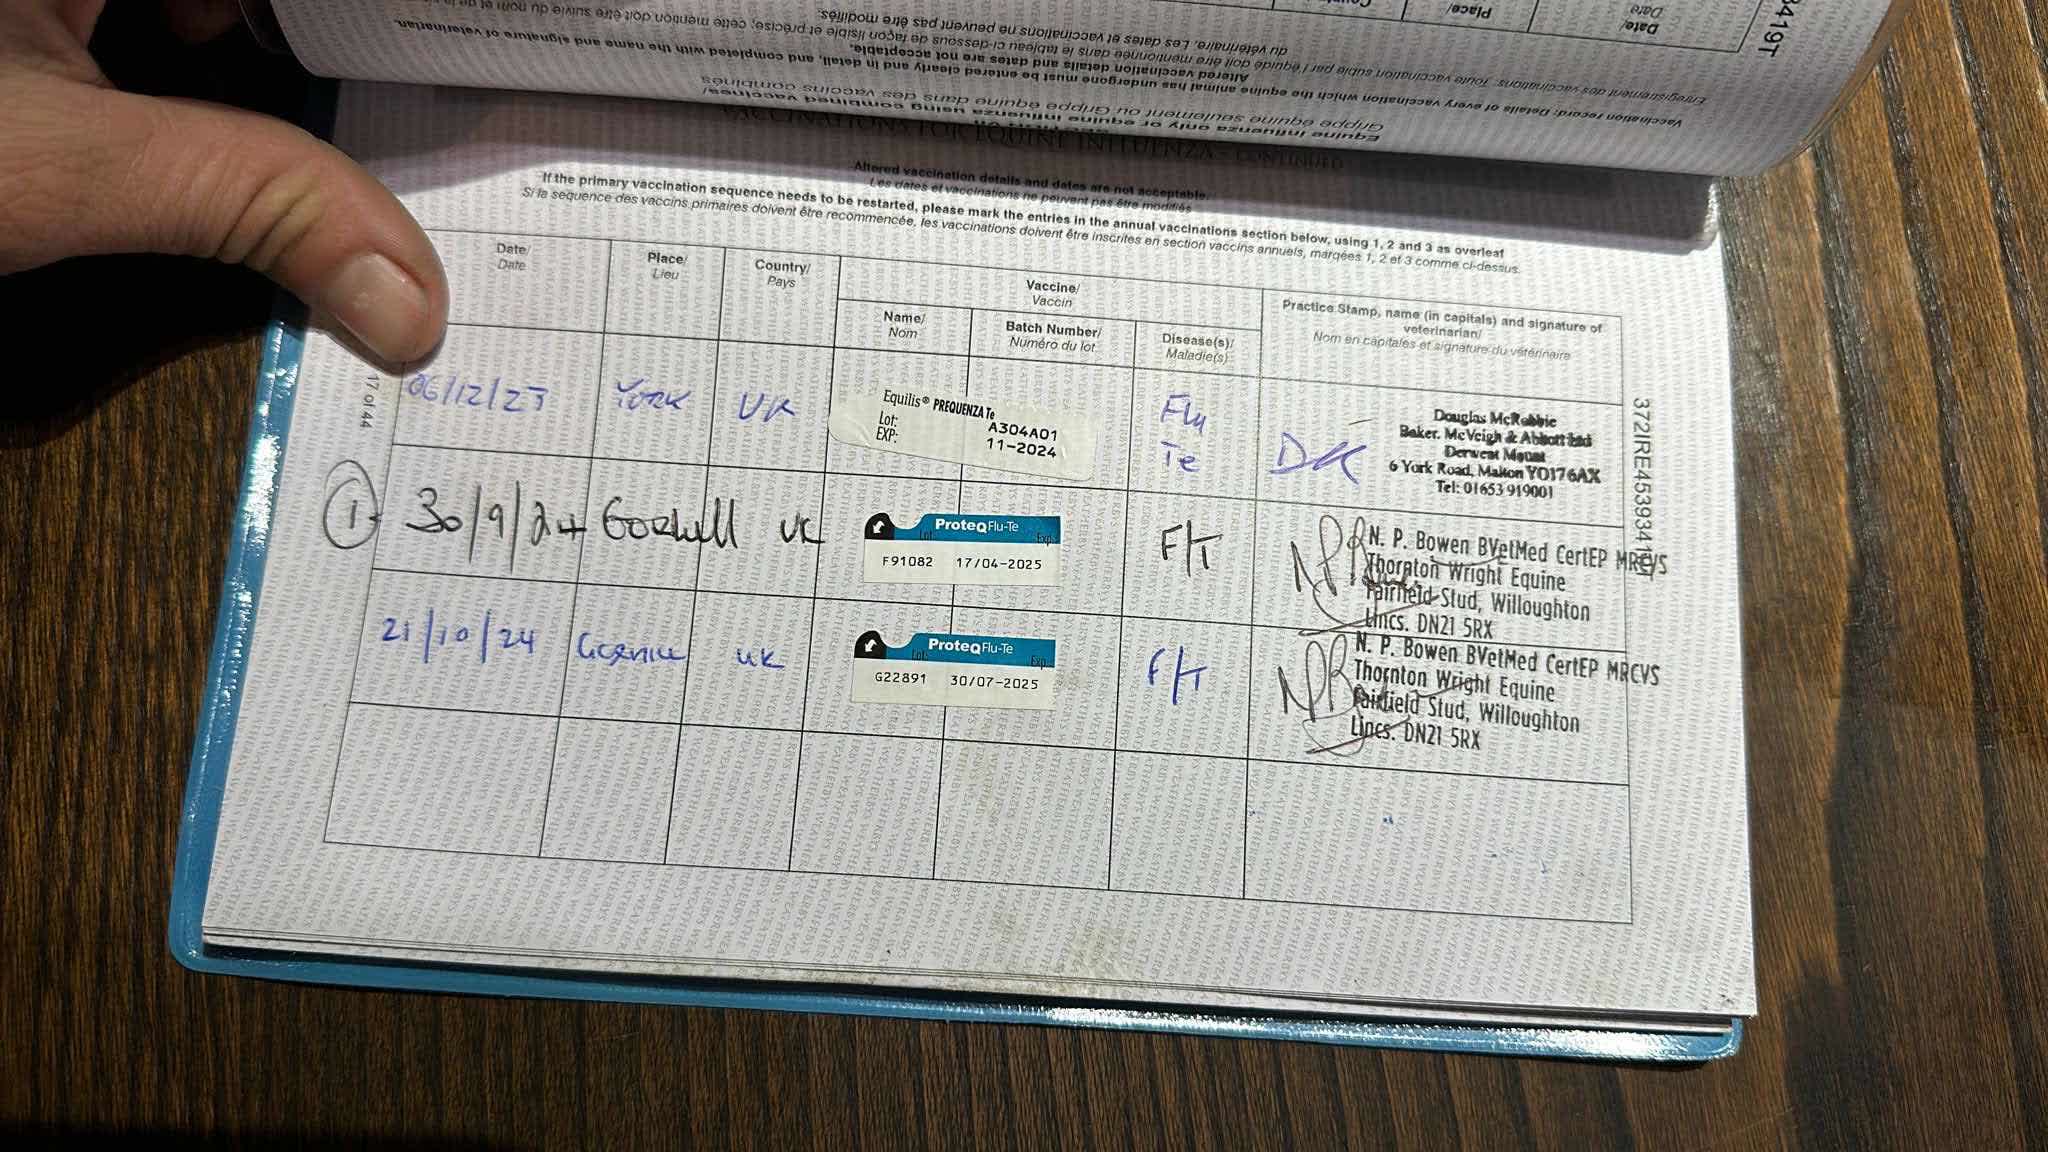 Date/
Date
Place/
Vaccination record: Details of every vaccination which the equine animal has undergone must be entered clearly and in detail, and completed with the name and signature of veterinarian.
Altered vaccination details and dates are not acceptable.
du vétérinaire. Les dates et vaccinations ne peuvent pas être modifiés.
Equine influenza only or equine influenza using combined vaccines/
Grippe équine seulement ou Grippe équine dans des vaccins combinés
VACCINATIONS FOR EQUINE INFLUENZA - CONTINUED
Altered vaccination details and dates are not acceptable.
Les dates et vaccinations ne peuvent pas être modifiés
If the primary vaccination sequence needs to be restarted, please mark the entries in the annual vaccinations section below, using 1, 2 and 3 as overleaf
Si la sequence des vaccins primaires doivent être recommencée, les vaccinations doivent être inscrites en section vaccins annuels, marqées 1, 2 et 3 comme ci-dessus.
Date/
Date
Place/
Lieu
Country/
Pays
Vaccine/
Vaccin
Name/
Nom
Batch Number/
Numéro du lot
Disease(s)/
Maladie(s)
Practice Stamp, name (in capitals) and signature of
veterinarian/
Nom en capitales et signature du vétérinaire
17 of 44
06/12/23 York UK
Equilis® PREQUENZA Te
Lot: A304A01
EXP: 11-2024
Flu
Te
Douglas McRobbie
Baker. McVeigh & Abbott Ltd
Derwent Mount
6 York Road, Malton YO176AX
Tel: 01653 919001
1 30/9/24 UK
ProteqFlu-Te
Lot: Exp:
F91082 17/04-2025
F/T
N. P. Bowen BVetMed CertEP MRCVS
Thornton Wright Equine
Fairfield Stud, Willoughton
Lincs. DN21 5RX
21/10/24 UK
ProteqFlu-Te
Lot: Exp:
G22891 30/07-2025
F/T
N. P. Bowen BVetMed CertEP MRCVS
Thornton Wright Equine
Fairfield Stud, Willoughton
Lincs. DN21 5RX